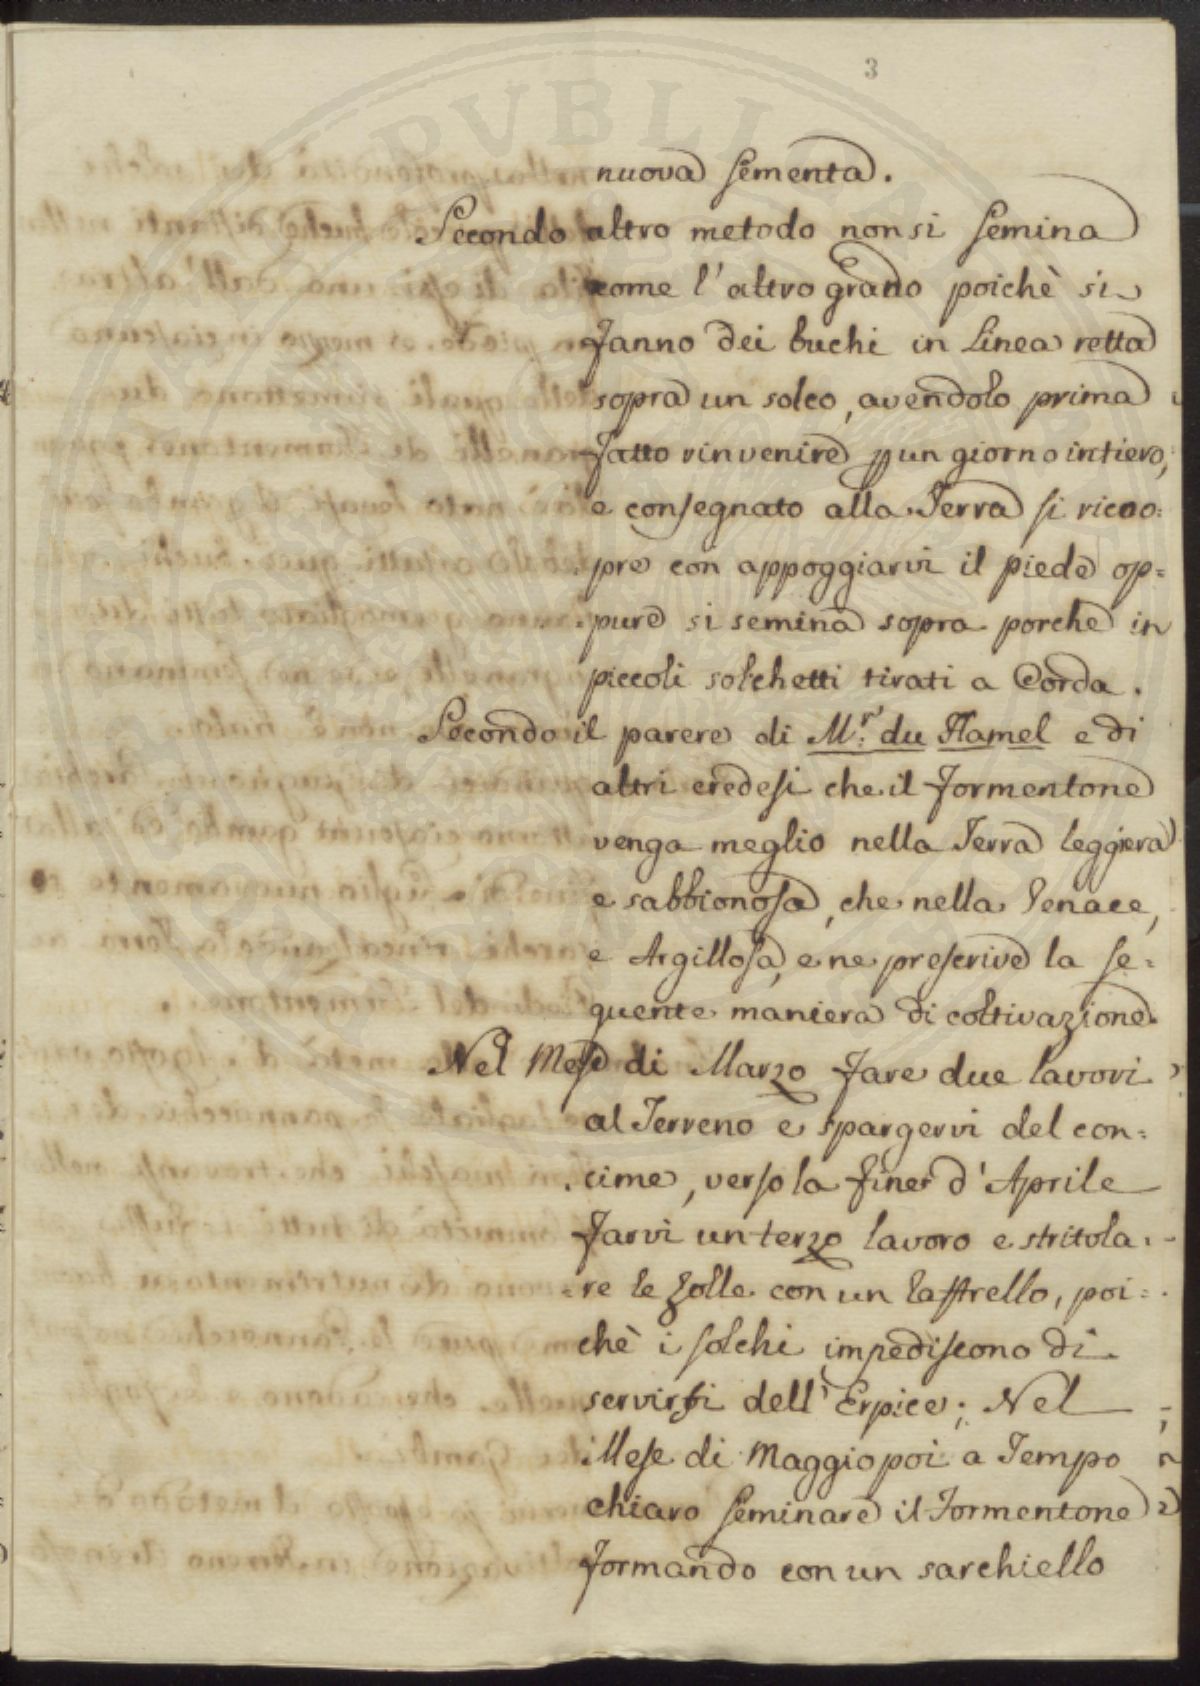 3
nuova sementa.
Secondo altro metodo non si semina
come l'altro grano poichè si
fanno dei buchi in Linea retta
sopra un solco, avendolo prima
fatto rinvenire p un giorno intiero,
e consegnato alla Terra si ricoo:
pre con appoggiarvi il piede op=
pure si semina sopra porche in
piccoli solchetti tirati a Corda.
Secondo il parere di M.r du Hamel e di
altri credesi che il formentone
venga meglio nella Terra leggiera
e sabbionosa, che nella tenace,
e Argillosa, e ne prescrive la se=
quente maniera di coltivazione.
Nel Mese di Marzo fare due lavori
al Terreno e spargervi del con:
cime, verso la fine d'Aprile
farvi un terzo lavoro e stritola:
re le Zolle con un rastrello, poi=
chè i solchi impediscono di
servirsi dell'Erpice; Nel
Mese di Maggio poi a Tempo
chiaro seminare il Formentone
formando con un sarchiello
PUBLICA